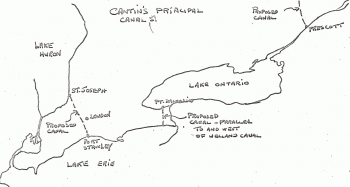 CANTIN'S PRINCIPAL
CANALS.
PROPOSED
CANAL
PRESCOTT
LAKE
HURON
ST. JOSEPH
LONDON
PROPOSED
CANAL
PORT
STANLEY
LAKE ERIE
LAKE ONTARIO
PROPOSED
CANAL - PARALLEL
TO AND WEST
OF WELLAND CANAL